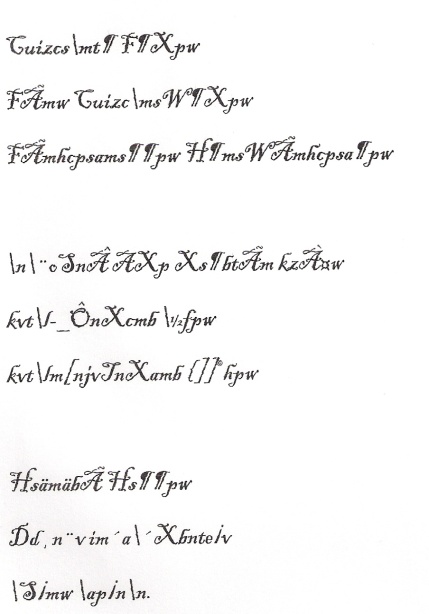 Cuizcs\mt¶ F¶Xpw
FÃmw Cuizc\msW¶Xpw
FÃmhcpsams¶¶pw H¶msWÃmhcpsa¶pw
\n\¨oSnÂ ÂXp Xs¶btÃm kzÀ¤w
kvt\l-_ÔnXcmb \½fpw
kvt\lm[njvTnXamb {]]©hpw
HsämäbÃ Hs¶¶pw
Dd¸n¨v im´a\´Xbnte¡v
\S¡mw \ap¡n\n.